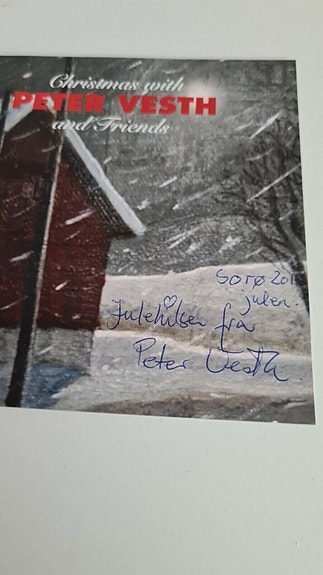 Christmas with
PETER VESTH
and Friends
Sorø
julen.
Julehilsen fra
Peter Vesth